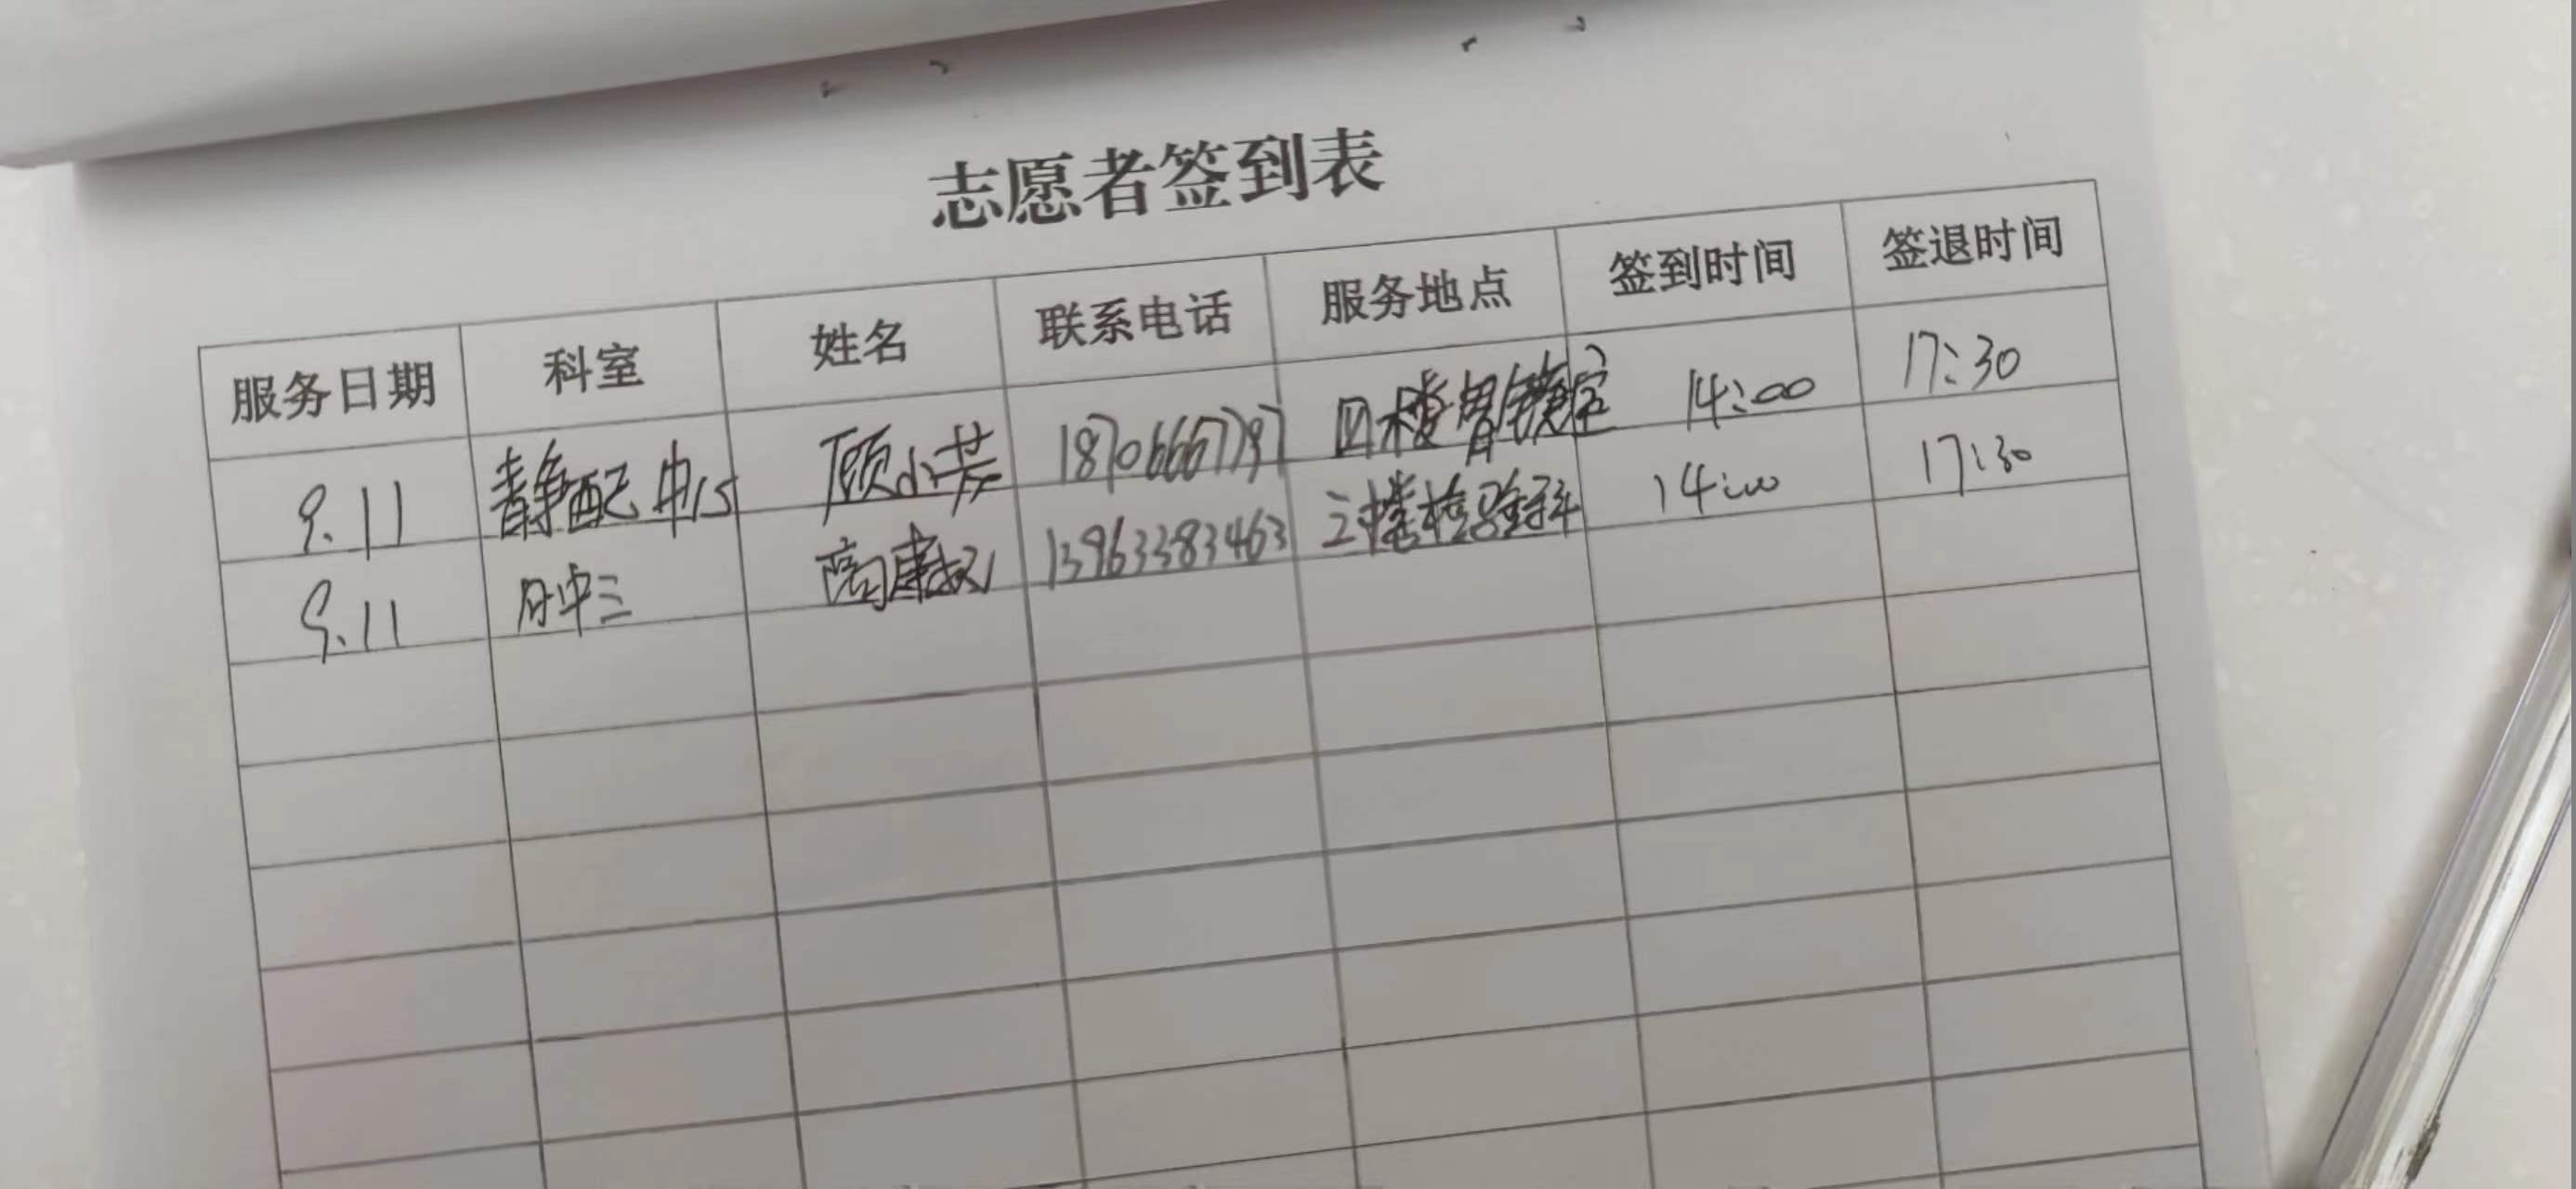 志愿者签到表
服务日期 科室 姓名 联系电话 服务地点 签到时间 签退时间
9.11 静配中心 顾小芳 18706667797 四楼胃镜室 14:00 17:30
9.11 13963383463 三楼检验科 14:00 17:30